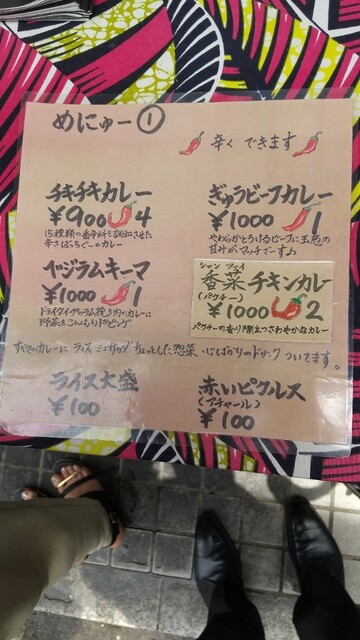 めにゅー①
辛く できます
チキチキカレー
¥900 4
15種類の香辛料を調和させた
辛さばっちぐーのカレー
ぎゅうビーフカレー
¥1000 1
やわらかとろけるビーフに玉葱の
甘みがマッチでーす♪
ベジラムキーマ
¥1000 1
ドライタイプのラム挽き肉のカレーに
野菜をこんもりトッピング
シャン ツァイ
香菜チキンカレー
(パクチー)
¥1000 2
パクチーの香り際立つさわやかなカレー
すべてのカレーに ライス ミニサラダ ちょっとした惣菜 いじばかりのドリンク ついてます。
ライス大盛
¥100
赤いピクルス
(アチャール)
¥100